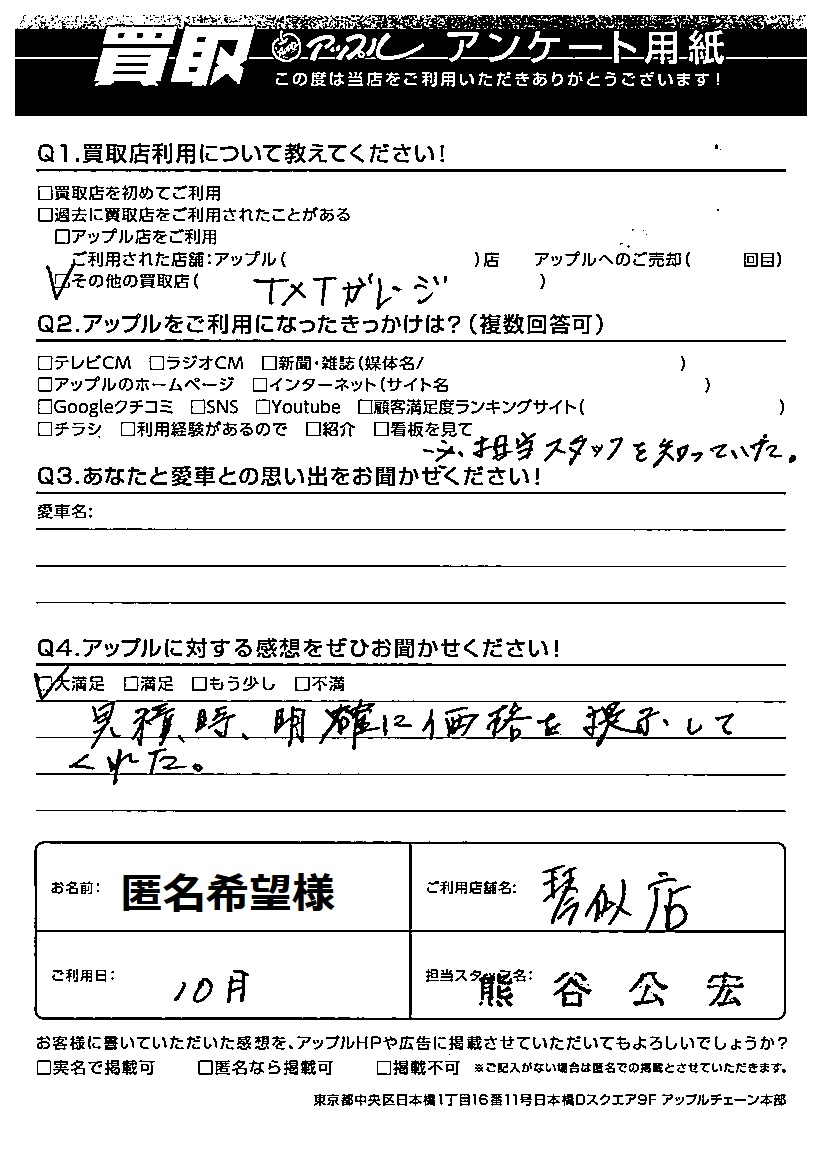 買取 アップル アンケート用紙
この度は当店をご利用いただきありがとうございます!
Q1.買取店利用について教えてください!
□買取店を初めてご利用
□過去に買取店をご利用されたことがある
□アップル店をご利用
ご利用された店舗:アップル( )店 アップルへのご売却( 回目)
☑その他の買取店( TXTガレージ )
Q2.アップルをご利用になったきっかけは?(複数回答可)
□テレビCM □ラジオCM □新聞・雑誌(媒体名/ )
□アップルのホームページ □インターネット(サイト名 )
□Googleクチコミ □SNS □Youtube □顧客満足度ランキングサイト( )
□チラシ □利用経験があるので □紹介 □看板を見て
担当スタッフを知っていた。
Q3.あなたと愛車との思い出をお聞かせください!
愛車名:
Q4.アップルに対する感想をぜひお聞かせください!
☑大満足 □満足 □もう少し □不満
見積時、明確に価格を提示して
くれた。
お名前: 匿名希望様 ご利用店舗名: 琴似店
ご利用日: 10月 担当スタッフ名: 熊谷公宏
お客様に書いていただいた感想を、アップルHPや広告に掲載させていただいてもよろしいでしょうか?
□実名で掲載可 □匿名なら掲載可 □掲載不可 ※ご記入がない場合は匿名での掲載とさせていただきます。
東京都中央区日本橋1丁目16番11号日本橋Dスクエア9F アップルチェーン本部